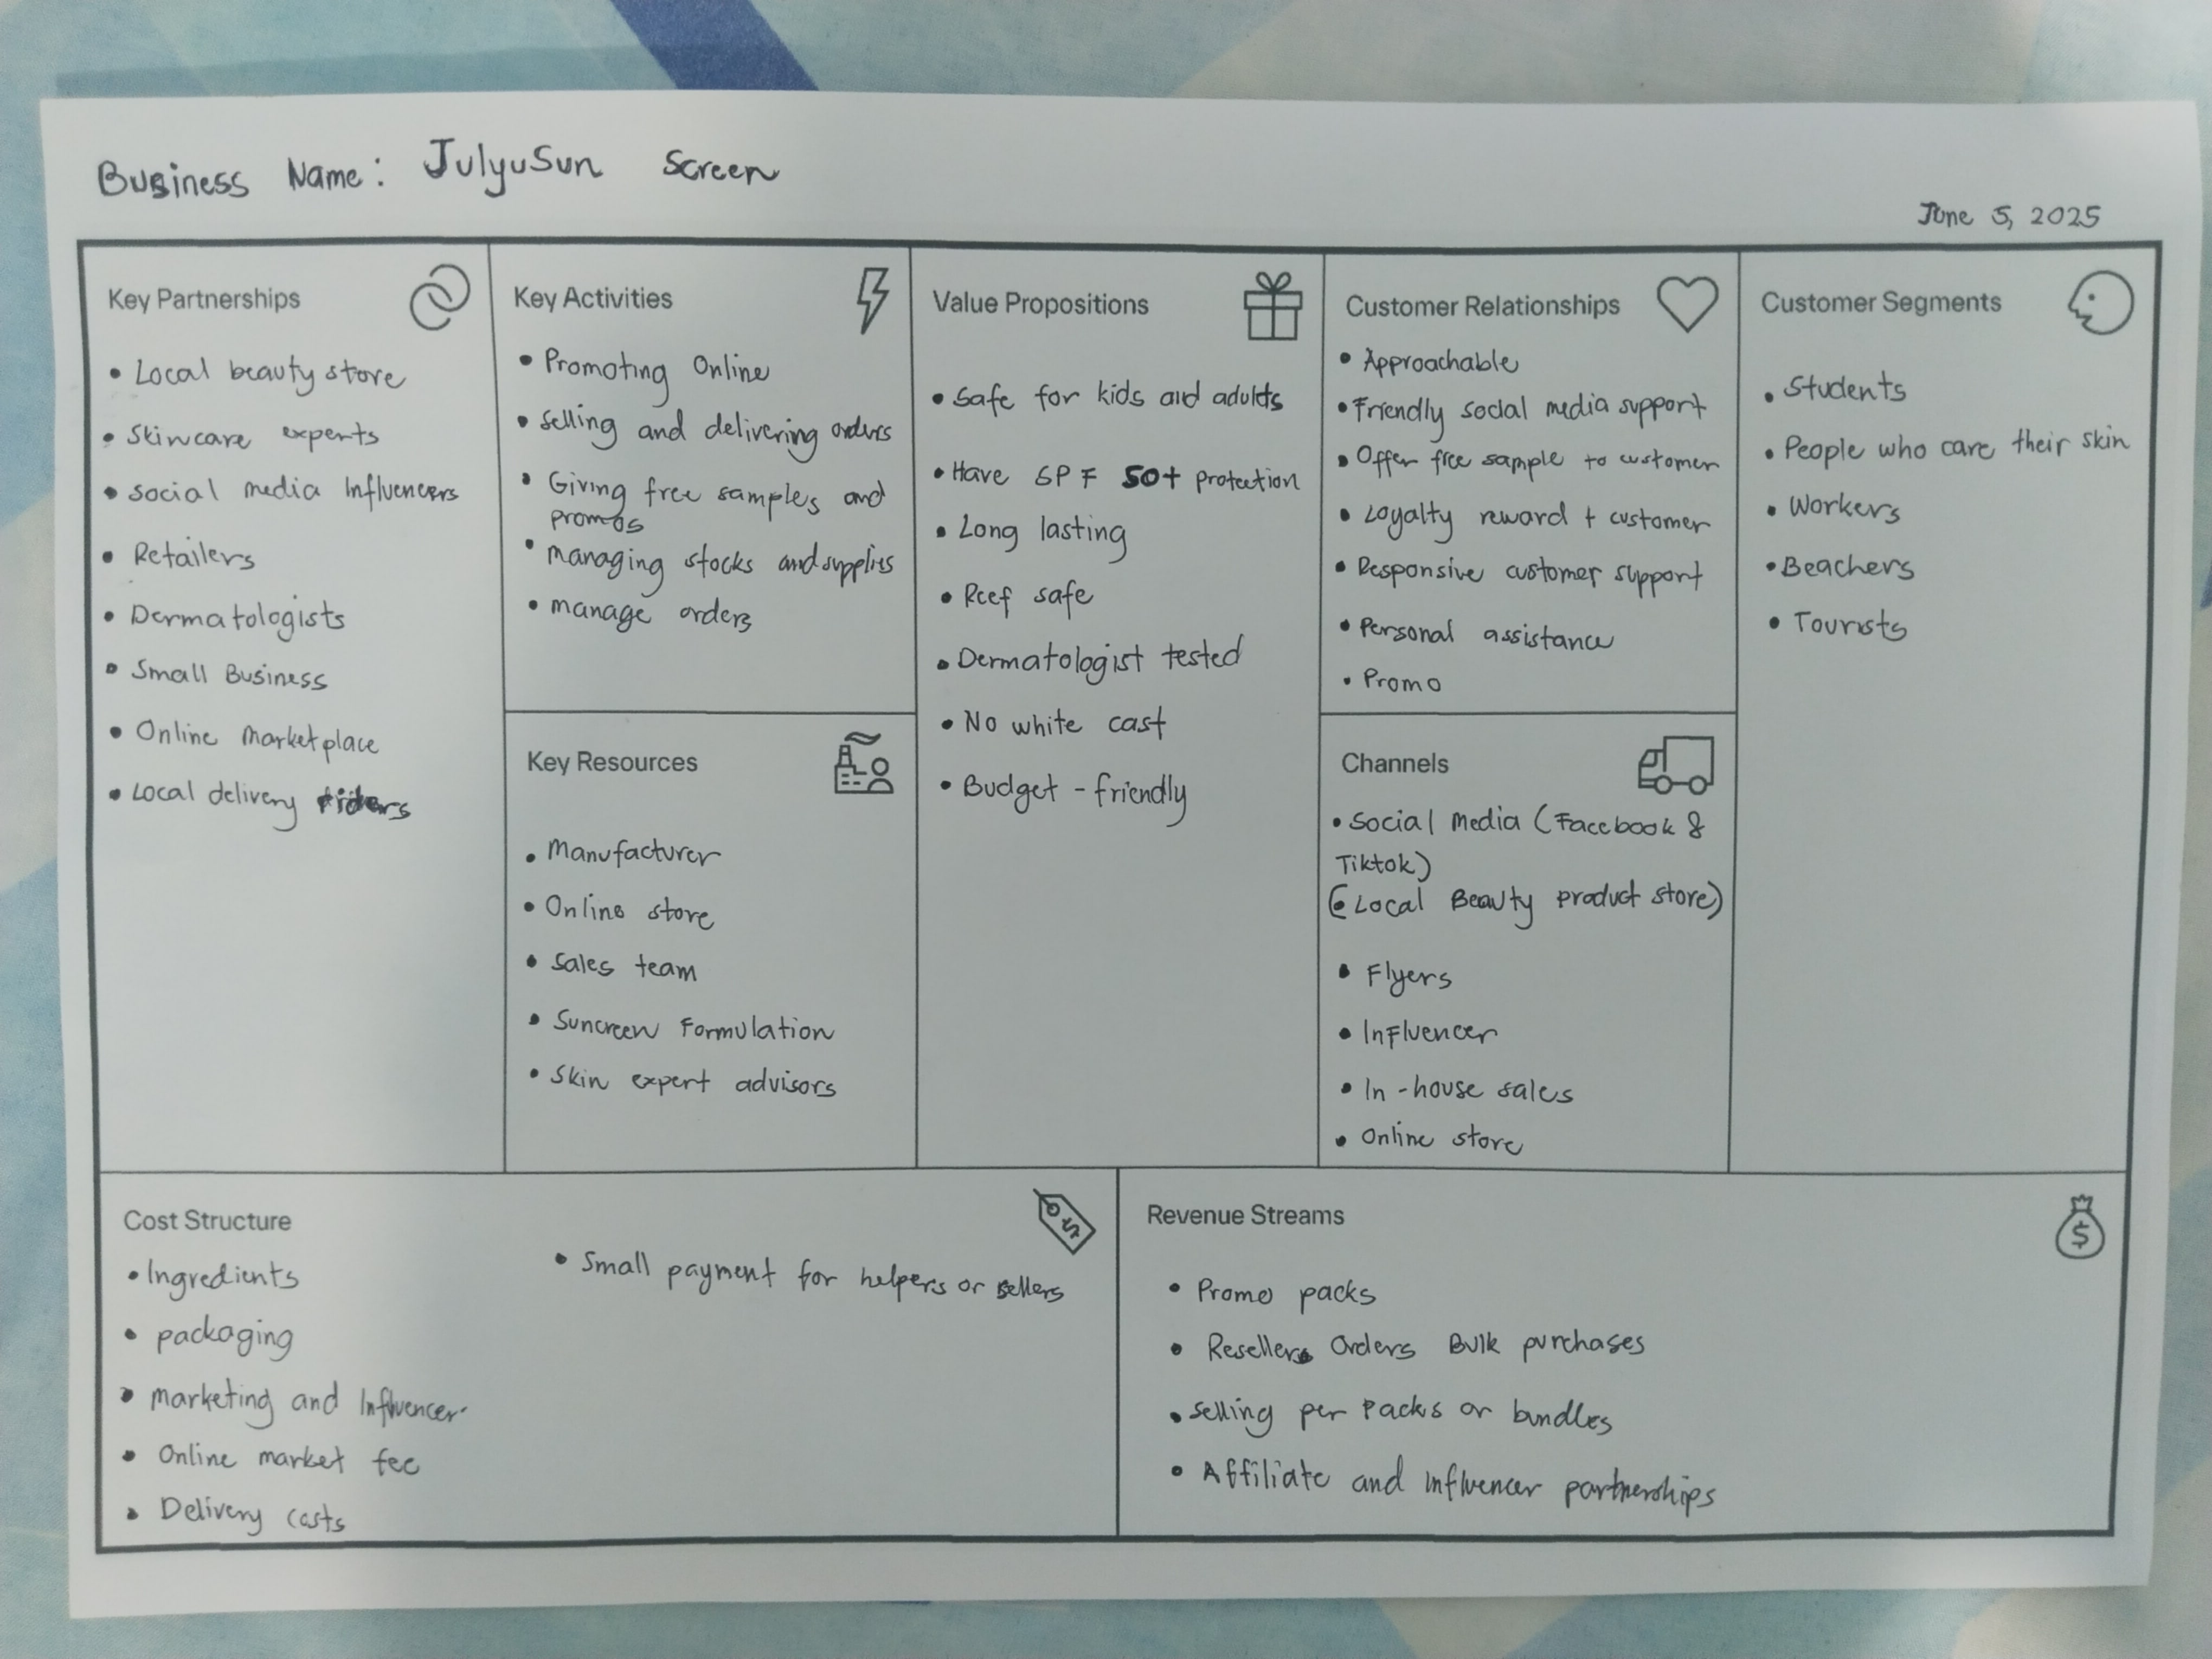 Business Name: JulyuSun Screen
June 5, 2025
Key Partnerships
• Local beauty store
• Skincare experts
• social media Influencers
• Retailers
• Dermatologists
• Small Business
• Online Marketplace
• Local delivery riders
Key Activities
• Promoting Online
• selling and delivering orders
• Giving free samples and
promos
• managing stocks and supplies
• manage orders
Key Resources
• Manufacturer
• Online store
• Sales team
• Suncreen Formulation
• Skin expert advisors
Value Propositions
• Safe for kids and adults
• Have SPF 50+ protection
• Long lasting
• Reef safe
• Dermatologist tested
• No white cast
• Budget - friendly
Customer Relationships
• Approachable
• Friendly social media support
• Offer free sample to customer
• Loyalty reward + customer
• Responsive customer support
• Personal assistance
• Promo
Channels
• Social Media (Facebook &
Tiktok)
(• Local Beauty product store)
• Flyers
• Influencer
• In-house sales
• Online store
Customer Segments
• Students
• People who care their skin
• Workers
• Beachers
• Tourists
Cost Structure
• Ingredients
• packaging
• Marketing and Influencer
• Online market fee
• Delivery costs
• Small payment for helpers or sellers
Revenue Streams
• Promo packs
• Resellers Orders Bulk purchases
• Selling per Packs or bundles
• Affiliate and influencer partnerships